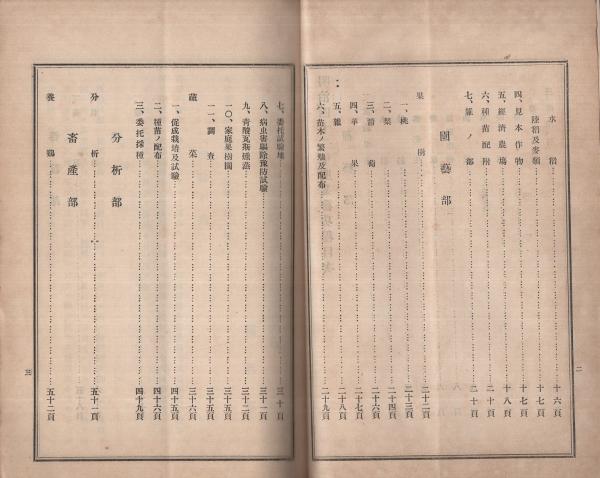 水稻……十六頁
陸稻及麥類……十七頁
四、見本作物……十七頁
五、經濟農場……十八頁
六、種苗配附……二十頁
七、雜ノ部……二十頁
園藝部
果樹……二十二頁
一、桃……二十三頁
二、梨……二十四頁
三、葡萄……二十六頁
四、苹果……二十七頁
五、雜……二十八頁
六、苗木ノ繁殖及配布……二十九頁
二
七、委托試驗地……三十頁
八、病虫害驅除豫防試驗……三十一頁
九、青酸瓦斯燻蒸……三十二頁
一〇、家庭果樹園……三十五頁
一一、調査……三十五頁
蔬菜……三十六頁
一、促成栽培及試驗……四十五頁
二、種苗ノ配布……四十六頁
三、委托採種……四十九頁
分析部
分析……五十一頁
畜產部
養鷄……五十二頁
三